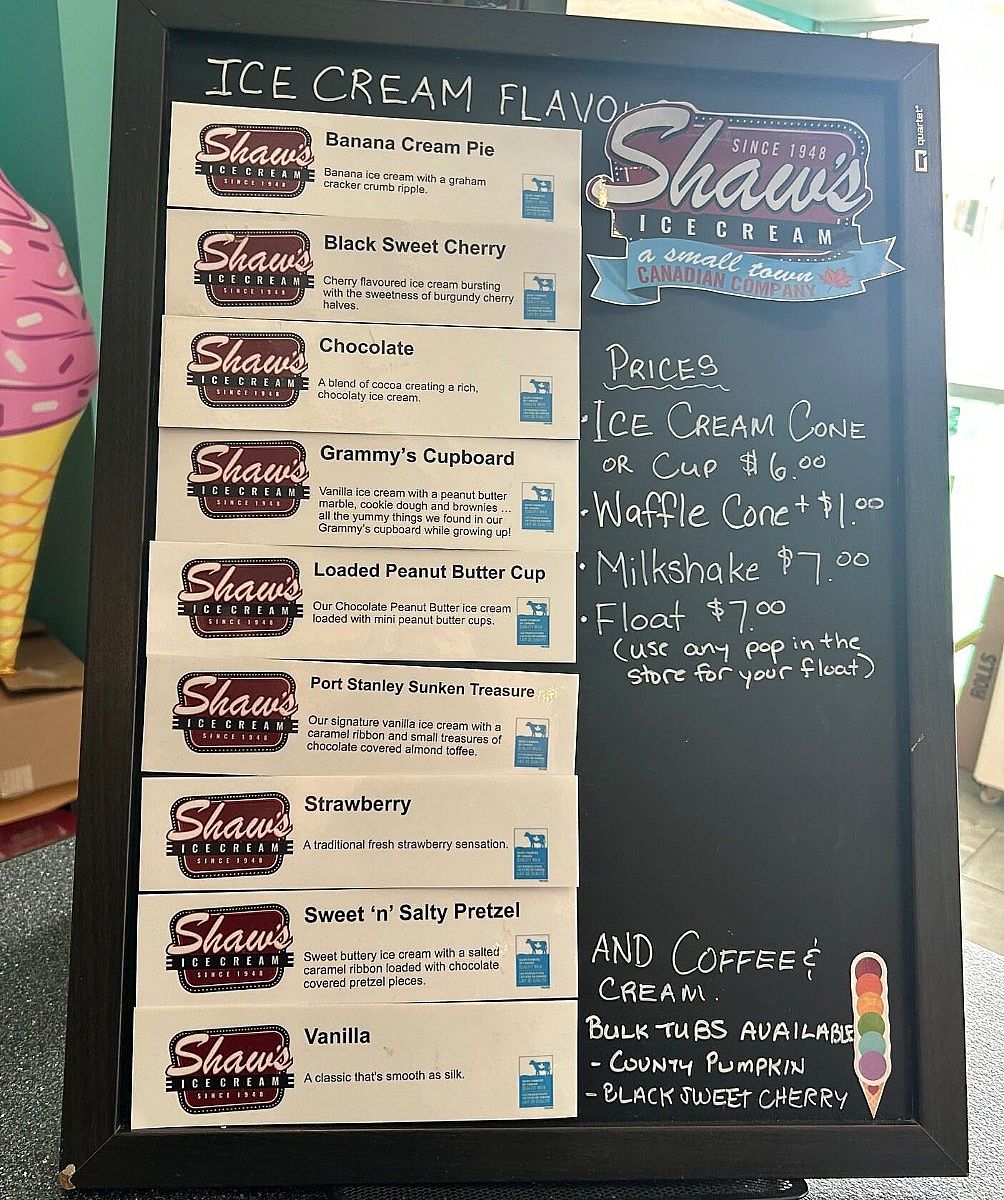 ICE CREAM FLAVOU
Shaw's
ICE CREAM
SINCE 1948
Banana Cream Pie
Banana ice cream with a graham
cracker crumb ripple.
Shaw's
ICE CREAM
SINCE 1948
Black Sweet Cherry
Cherry flavoured ice cream bursting
with the sweetness of burgundy cherry
halves.
Shaw's
ICE CREAM
SINCE 1948
Chocolate
A blend of cocoa creating a rich,
chocolaty ice cream.
Shaw's
ICE CREAM
SINCE 1948
Grammy's Cupboard
Vanilla ice cream with a peanut butter
marble, cookie dough and brownies ...
all the yummy things we found in our
Grammy's cupboard while growing up!
Shaw's
ICE CREAM
SINCE 1948
Loaded Peanut Butter Cup
Our Chocolate Peanut Butter ice cream
loaded with mini peanut butter cups.
Shaw's
ICE CREAM
SINCE 1948
Port Stanley Sunken Treasure
Our signature vanilla ice cream with a
caramel ribbon and small treasures of
chocolate covered almond toffee.
Shaw's
ICE CREAM
SINCE 1948
Strawberry
A traditional fresh strawberry sensation.
Shaw's
ICE CREAM
SINCE 1948
Sweet 'n' Salty Pretzel
Sweet buttery ice cream with a salted
caramel ribbon loaded with chocolate
covered pretzel pieces.
Shaw's
ICE CREAM
SINCE 1948
Vanilla
A classic that's smooth as silk.
SINCE 1948
Shaw's
ICE CREAM
a small town
CANADIAN COMPANY
quartet
PRICES
• ICE CREAM CONE
OR CUP $6.00
• Waffle Cone + $1.00
• Milkshake $7.00
• Float $7.00
(use any pop in the
store for your float)
AND COFFEE &
CREAM.
BULK TUBS AVAILABLE
- COUNTY PUMPKIN
- BLACK SWEET CHERRY
ROLLS